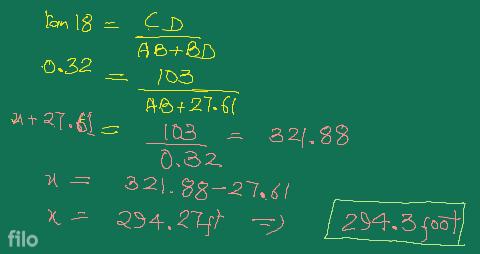 tan 18 = CD / AB+BD
0.32 = 103 / AB+27.61
x+27.61 = 103 / 0.32 = 321.88
x = 321.88-27.61
x = 294.27ft => 294.3 foot
filo